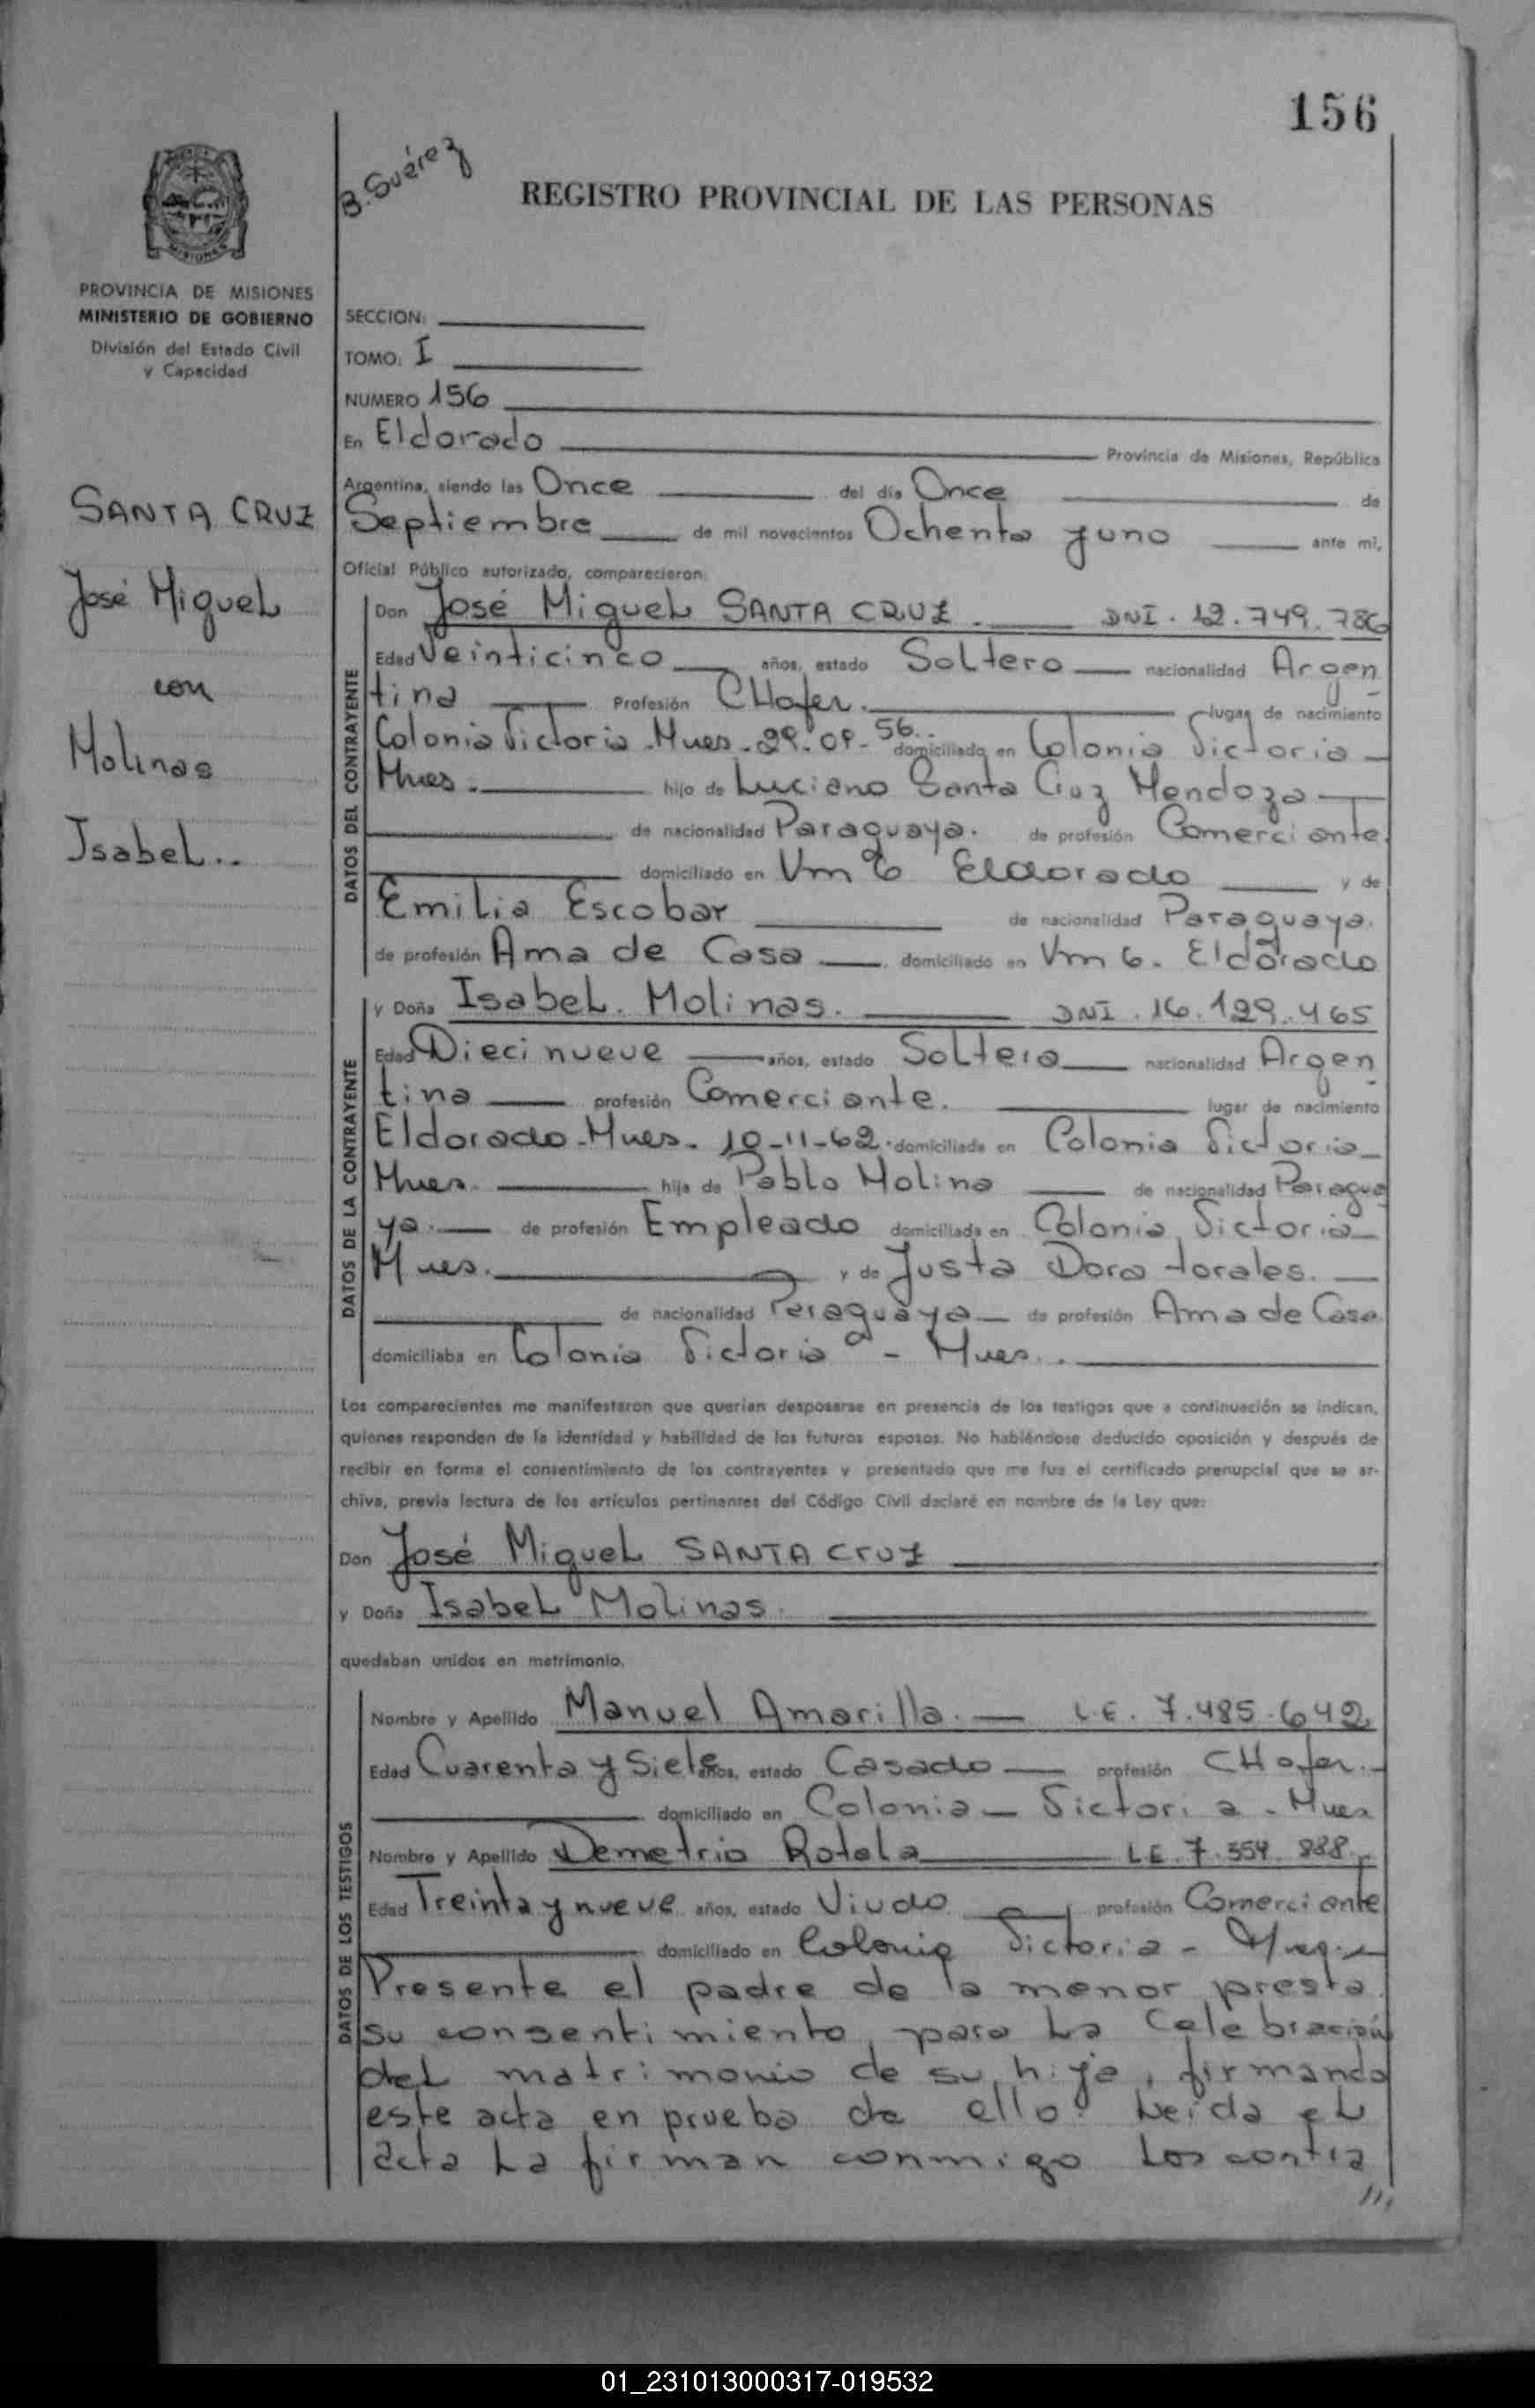 156
B. Suárez
REGISTRO PROVINCIAL DE LAS PERSONAS
MISIONES
PROVINCIA DE MISIONES
MINISTERIO DE GOBIERNO
División del Estado Civil
y Capacidad
SANTA CRUZ
José Miguel
con
Molinas
Isabel..
SECCION:
TOMO: I
NUMERO 156
En Eldorado Provincia de Misiones, República
Argentina, siendo las Once del día Once de
Septiembre de mil novecientos Ochenta y uno ante mi,
Oficial Público autorizado, comparecieron:
DATOS DEL CONTRAYENTE
Don José Miguel SANTA CRUZ. DNI. 12.749.786
Edad Veinticinco años, estado Soltero nacionalidad Argen
tina Profesión CHofer. lugar de nacimiento
Colonia Victoria - Mnes - 29.09.56.. domiciliado en Colonia Victoria
Mnes. hijo de Luciano Santa Cruz Mendoza
de nacionalidad Paraguaya. de profesión Comerciante.
domiciliado en Km 6 Eldorado y de
Emilia Escobar de nacionalidad Paraguaya.
de profesión Ama de Casa domiciliado en Km 6. Eldorado
DATOS DE LA CONTRAYENTE
y Doña Isabel. Molinas. DNI. 16.129.465
Edad Diecinueve años, estado Soltera nacionalidad Argen
tina profesión Comerciante. lugar de nacimiento
Eldorado - Mnes - 10-11-62. domiciliada en Colonia Victoria
Mnes. hija de Pablo Molina de nacionalidad Paragua
ya. de profesión Empleado domiciliado en Colonia Victoria
Mnes. y de Justa Dora torales.
de nacionalidad Paraguaya de profesión Ama de Casa.
domiciliaba en Colonia Victoria - Mnes..
Los comparecientes me manifestaron que querían desposarse en presencia de los testigos que a continuación se indican,
quienes responden de la identidad y habilidad de los futuros esposos. No habiéndose deducido oposición y después de
recibir en forma el consentimiento de los contrayentes y presentado que me fue el certificado prenupcial que se ar-
chiva, previa lectura de los artículos pertinentes del Código Civil declaré en nombre de la Ley que:
Don José Miguel SANTA CRUZ
y Doña Isabel Molinas.
quedaban unidos en matrimonio.
DATOS DE LOS TESTIGOS
Nombre y Apellido Manuel Amarilla. L.E. 7.485.642
Edad Cuarenta y Siete años, estado Casado profesión CHofer.
domiciliado en Colonia - Victoria - Mnes
Nombre y Apellido Demetrio Rotela L.E. 7.554.888
Edad Treinta y nueve años, estado Viudo profesión Comerciante
domiciliado en Colonia Victoria - Mnes.
Presente el padre de la menor presta
su consentimiento para la Celebración
del matrimonio de su hija, firmando
este acta en prueba de ello. Leída el
acta la firman conmigo los contra
///
01_231013000317-019532